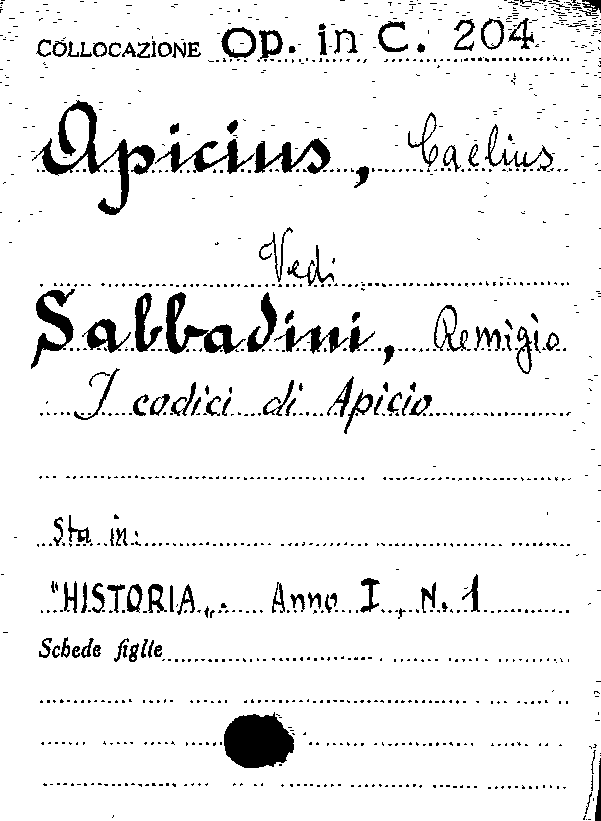 COLLOCAZIONE Op. in C. 204
Apicius, Caelius
Vedi
Sabbadini, Remigio
I codici di Apicio
Sta in:
"HISTORIA„. Anno I, N. 1
Schede figlie